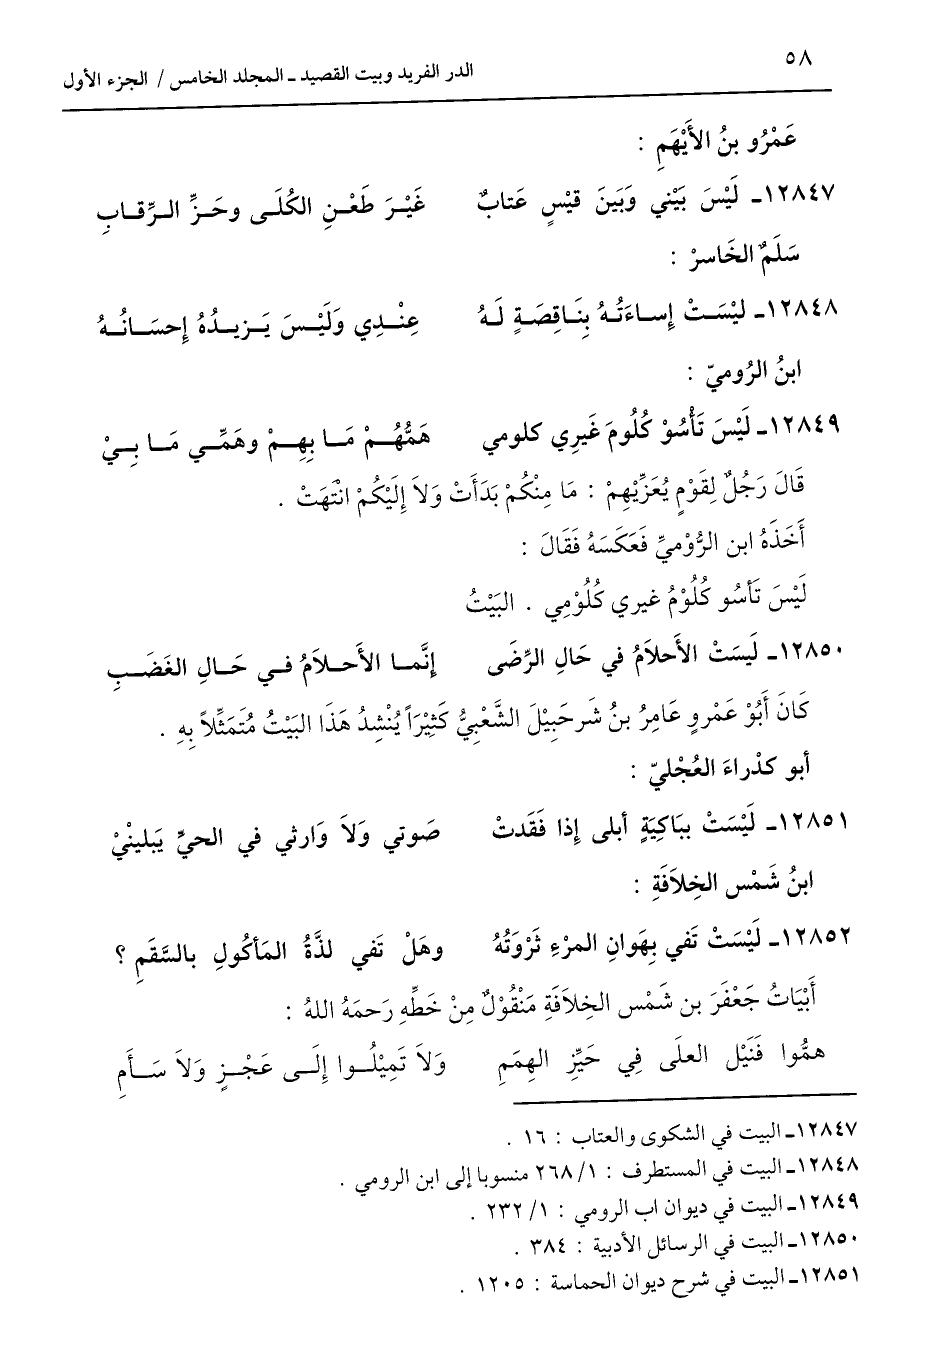 ٥٨
الدر الفريد وبيت القصيد ـ المجلد الخامس / الجزء الأول
عَمْرُو بنُ الأَيْهَمِ :
١٢٨٤٧ـ لَيْسَ بَيْني وَبَينَ قيْسٍ عَتابٌ غَيْرَ طَعْنِ الكُلَى وحَزِّ الرِّقابِ
سَلَمٌ الخَاسرْ :
١٢٨٤٨ـ ليْسَتْ إساءَتُهُ بِنَاقِصَةٍ لَهُ عِنْدِي وَلَيْسَ يَزيدُهُ إحسَانُهُ
ابنُ الرُوميّ :
١٢٨٤٩ـ لَيْسَ تَأْسُوْ كُلُومَ غَيرِي كلومي هَمُّهُمْ مَا بِهِمْ وهَمِّي مَا بِيْ
قَالَ رَجُلٌ لِقَومٍ يُعَزِّيْهِمْ : مَا مِنْكُمْ بَدَأَتْ وَلاَ إِلَيْكُمْ انْتَهَتْ .
أَخَذَهُ ابن الرُّوْميِّ فَعَكَسَهُ فَقَالَ :
لَيْسَ تَأسُو كُلُوْمُ غيري كُلُوْمِي . البَيْتُ
١٢٨٥٠ـ لَيسَتْ الأَحلاَمُ في حَالِ الرِّضَى إنَّما الأَحْلاَمُ في حَالِ الغَضَبِ
كَانَ أَبُوْ عَمْروٍ عَامِرُ بنُ شرحَبِيْلَ الشَّعْبِيُّ كَثِيْرَاً يُنْشِدُ هَذَا البَيْتُ مُتَمَثِّلاً بِهِ .
أبو كدْراءَ العُجْليّ :
١٢٨٥١ـ لَيْسَتْ ببَاكِيَةٍ أبلى إذَا فَقَدتْ صَوتي وَلاَ وَارثي في الحيِّ يَبلينْيْ
ابنُ شَمْس الخِلاَفَةِ :
١٢٨٥٢ـ لَيْسَتْ تَفي بِهَوانِ المرْءِ ثَرْوَتُهُ وهَلْ تَفي لذَّةُ المَأكُولِ بالسَّقَمِ ؟
أَبْيَاتُ جَعْفَرَ بن شَمْس الخِلاَفَةِ مَنْقُوْلٌ مِنْ خَطِّهِ رَحمَهُ اللهُ :
همُّوا فَنَيْل العلَى فِي حَيِّزِ الهِمَمِ وَلاَ تَمِيْلُوا إِلَى عَجْزٍ وَلاَ سَأَمِ
١٢٨٤٧ـ البيت في الشكوى والعتاب : ١٦ .
١٢٨٤٨ـ البيت في المستطرف : ١/ ٢٦٨ منسوبا إلى ابن الرومي .
١٢٨٤٩ـ البيت في ديوان اب الرومي : ١/ ٢٣٢ .
١٢٨٥٠ـ البيت في الرسائل الأدبية : ٣٨٤ .
١٢٨٥١ـ البيت في شرح ديوان الحماسة : ١٢٠٥ .